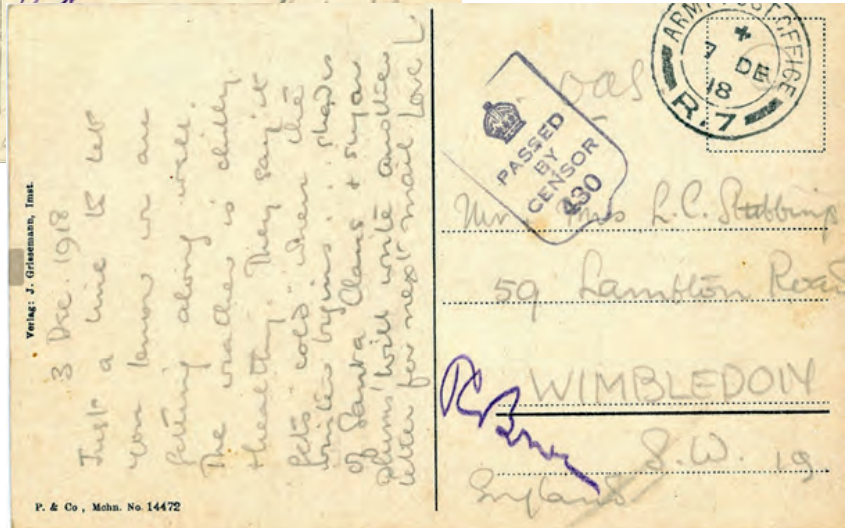 Verlag: J. Grissemann, Imst.
3 Dec. 1918
Just a line to let
you know we are
getting along well.
The weather is chilly
+ healthy. They say it
gets cold when the
winter begins ... shades
of Santa Claus & sugar
plums! Will write another
letter for next mail Love L
P. & Co, Mchn. No. 14472
OAS
ARMY POST OFFICE
7 DE
18
R.7
PASSED
BY
CENSOR
430
Mr. Mrs L.C. Stubbing
59 Lambton Road
WIMBLEDON
S.W. 19
England